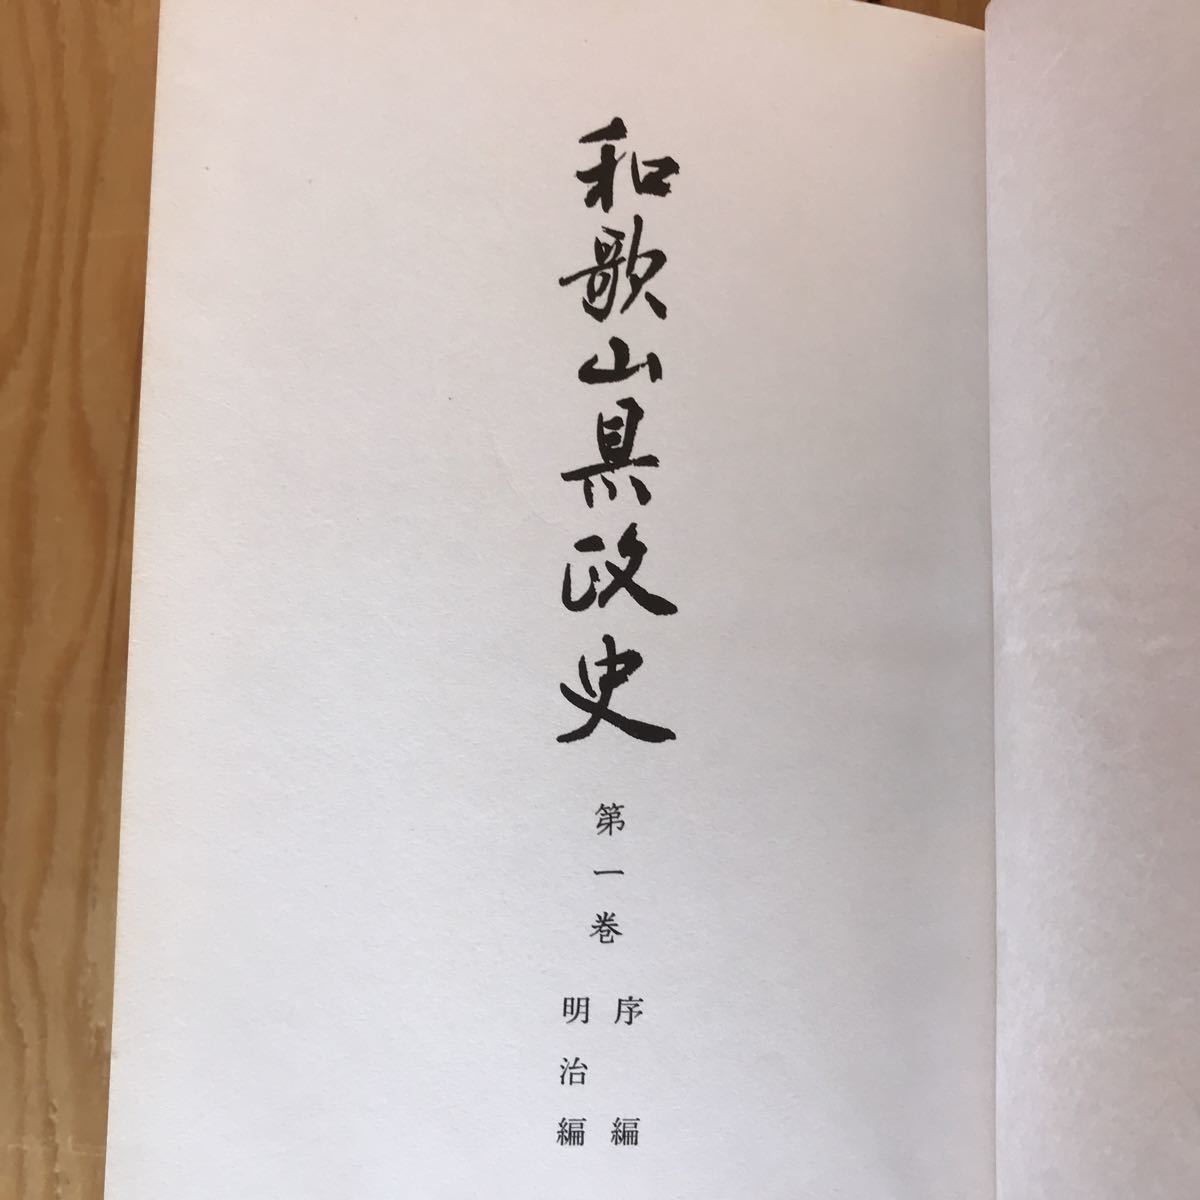 和歌山県政史
第一巻
序編
明治編